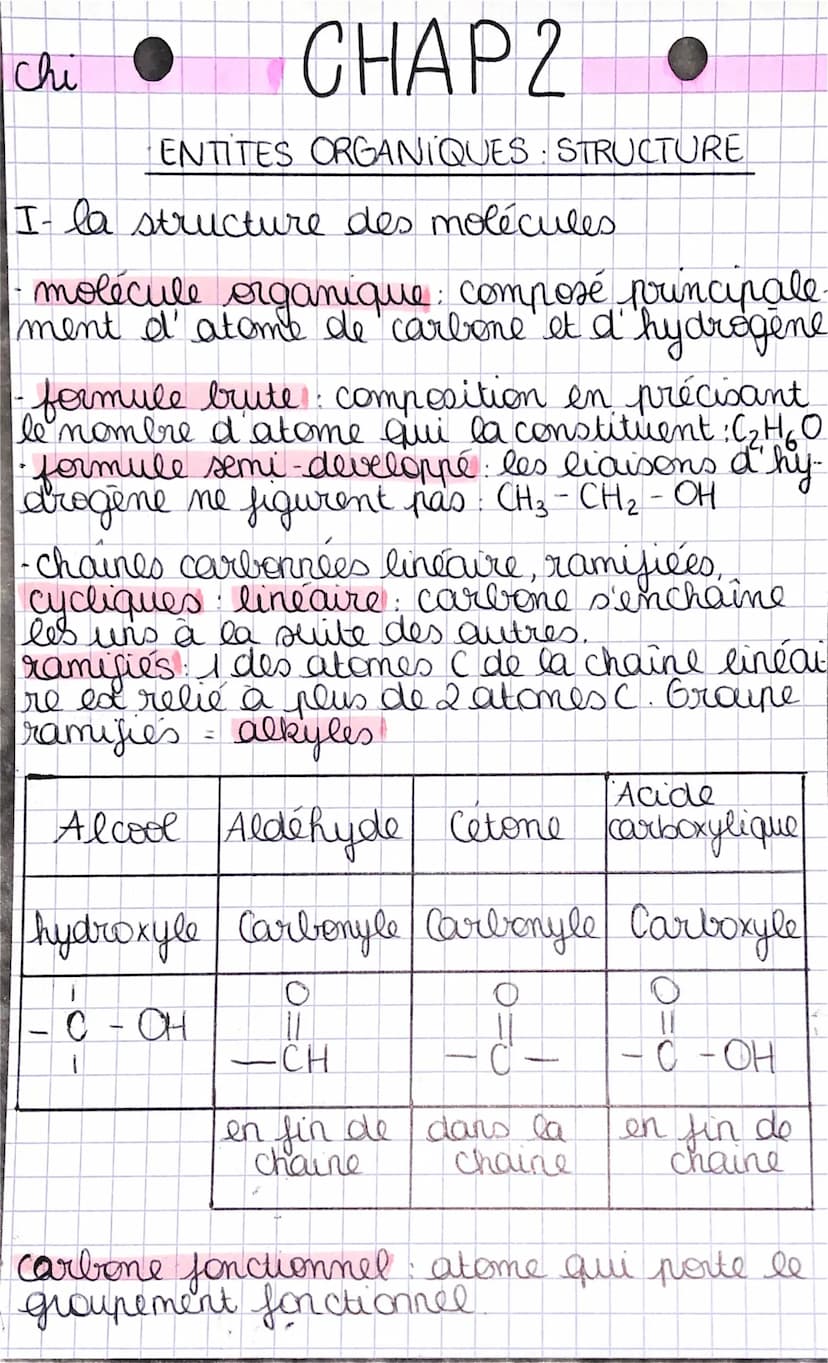 Chi CHAP 2
ENTITES ORGANIQUES : STRUCTURE
I- la structure des molécules
- molécule organique : composé principale-
ment d'atome de carbone et d'hydrogène
- formule brute : composition en précisant
le nombre d'atome qui la constituent : C₂H₆O
- formule semi-developpé : les liaisons d'hy-
drogène ne figurent pas : CH₃ - CH₂ - OH
- chaînes carbonnées linéaire, ramifiées,
cycliques : linéaire : carbone s'enchaîne
les uns à la suite des autres.
ramifiés : 1 des atomes C de la chaîne linéai
re est relié à plus de 2 atomes C. Groupe
ramifiés = alkyles
Alcool Aldéhyde Cétone Acide carboxylique
hydroxyle Carbonyle Carbonyle Carboxyle
O O O
|| || ||
- C - OH — CH — C — - C - OH
en fin de dans la en fin de
chaine chaine chaine
carbone fonctionnel : atome qui porte le
groupement fonctionnel.